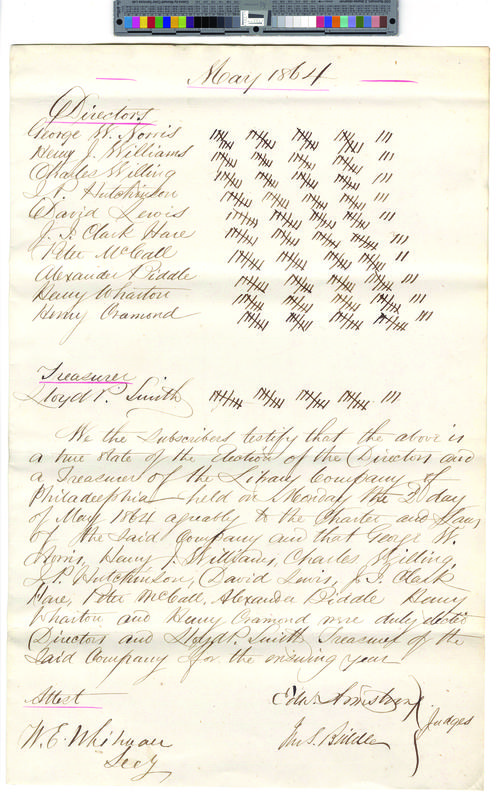 May 1864
Directors
George W. Norris
Henry J. Williams
Charles Willing
J. P. Hutchinson
David Lewis
J. I. Clark Hare
Peter McCall
Alexander Biddle
Henry Wharton
Henry Cramond
Treasurer
Lloyd P. Smith
We the subscribers testify that the above is
a true state of the election of the Directors and
a Treasurer of the Library Company of
Philadelphia held on Monday the 2d day
of May 1864 agreeably to the Charter and Laws
of the said Company and that George W.
Norris, Henry J. Williams, Charles Willing,
J. P. Hutchinson, David Lewis, J. I. Clark
Hare, Peter McCall, Alexander Biddle Henry
Wharton and Henry Cramond were duly elected
Directors and Lloyd P. Smith Treasurer of the
said Company for the ensuing year
Attest
Edw Armstrong
Judges
W. E. Whitman
Jn S. Biddle
Secy